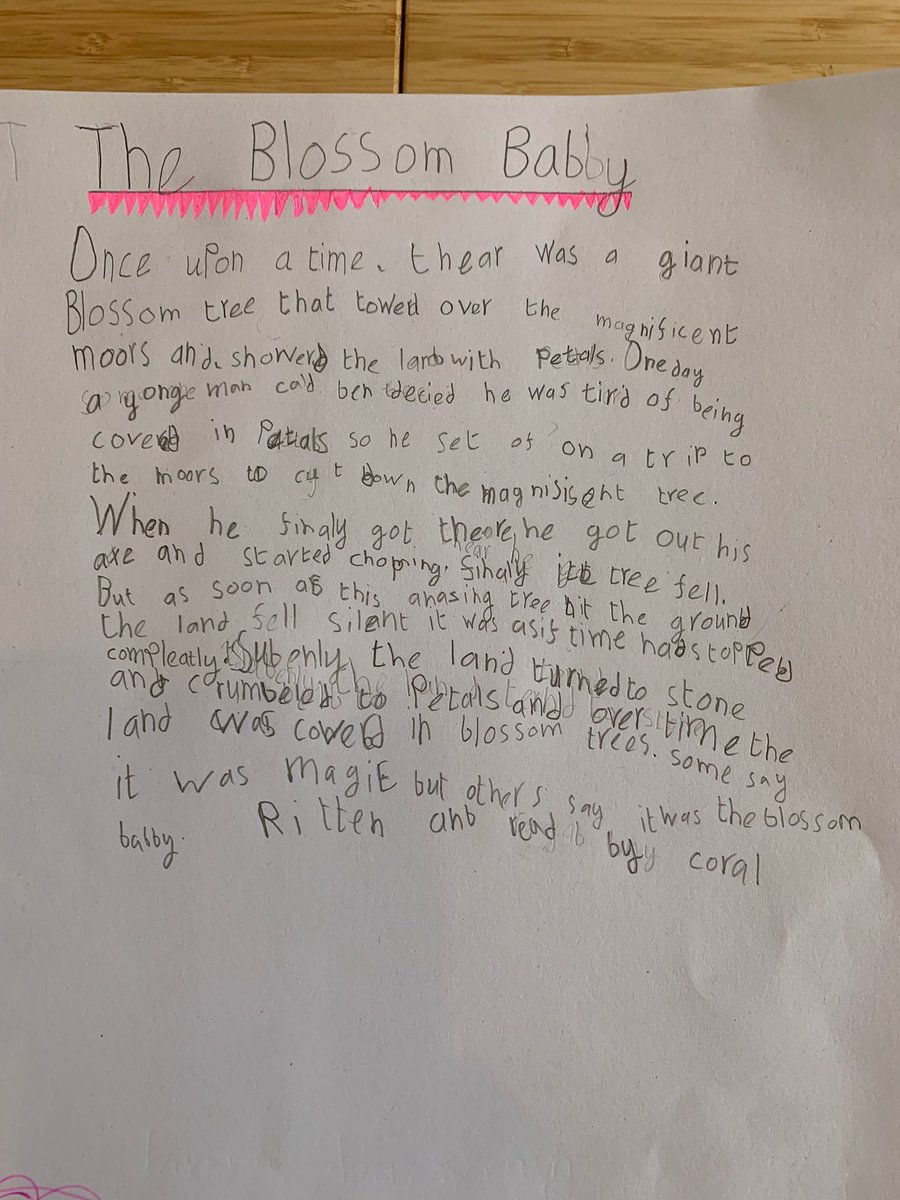 The Blossom Babby
Once upon a time. thear was a giant
Blossom tree that towerd over the magnificent
moors and showerd the land with Petals. One day
a yonge man cald ben decied he was tir'd of being
coverd in Petals so he set of on a trip to
the moors to cut down the magnifisent tree.
When he finaly got theare, he got out his
axe and started chopning. finaly the tree fell.
But as soon as this amasing tree hit the ground
the land fell silent it was as if time had stopped
compleatly Sudenly, the land turned to stone
and crumbeled to Petals and over time the
land was coverd in blossom trees. some say
it was magic but others say it was the blossom
babby. Ritten and read by coral